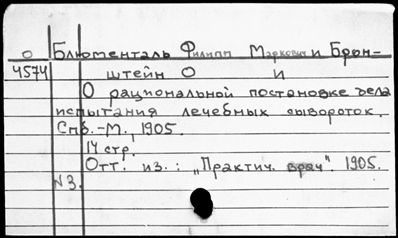 О Блюменталь Филипп Маркович и Брон-
4574 штейн О И
О рациональной постановке дела
испытания лечебных сывороток.
Спб.-М., 1905.
14 стр.
Отт. из.: „Практич. врач". 1905.
N3.